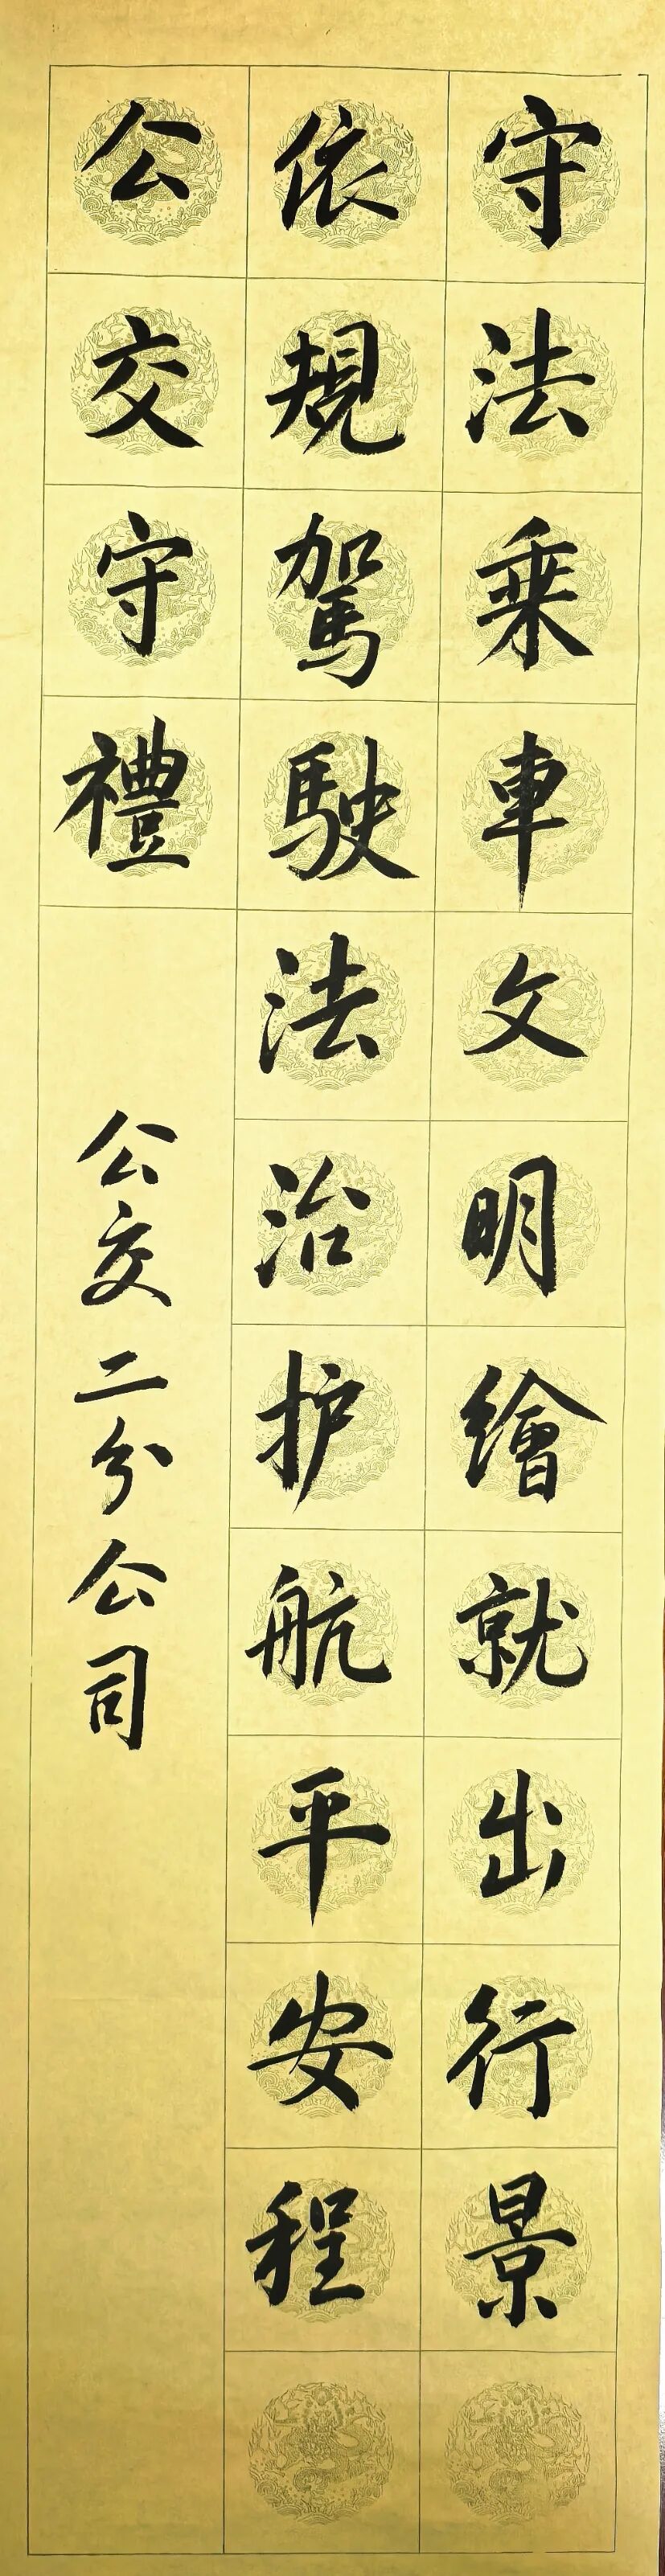 守法乗車文明繪就出行景
依規駕駛法治护航平安程
公交守禮
公交二分公司